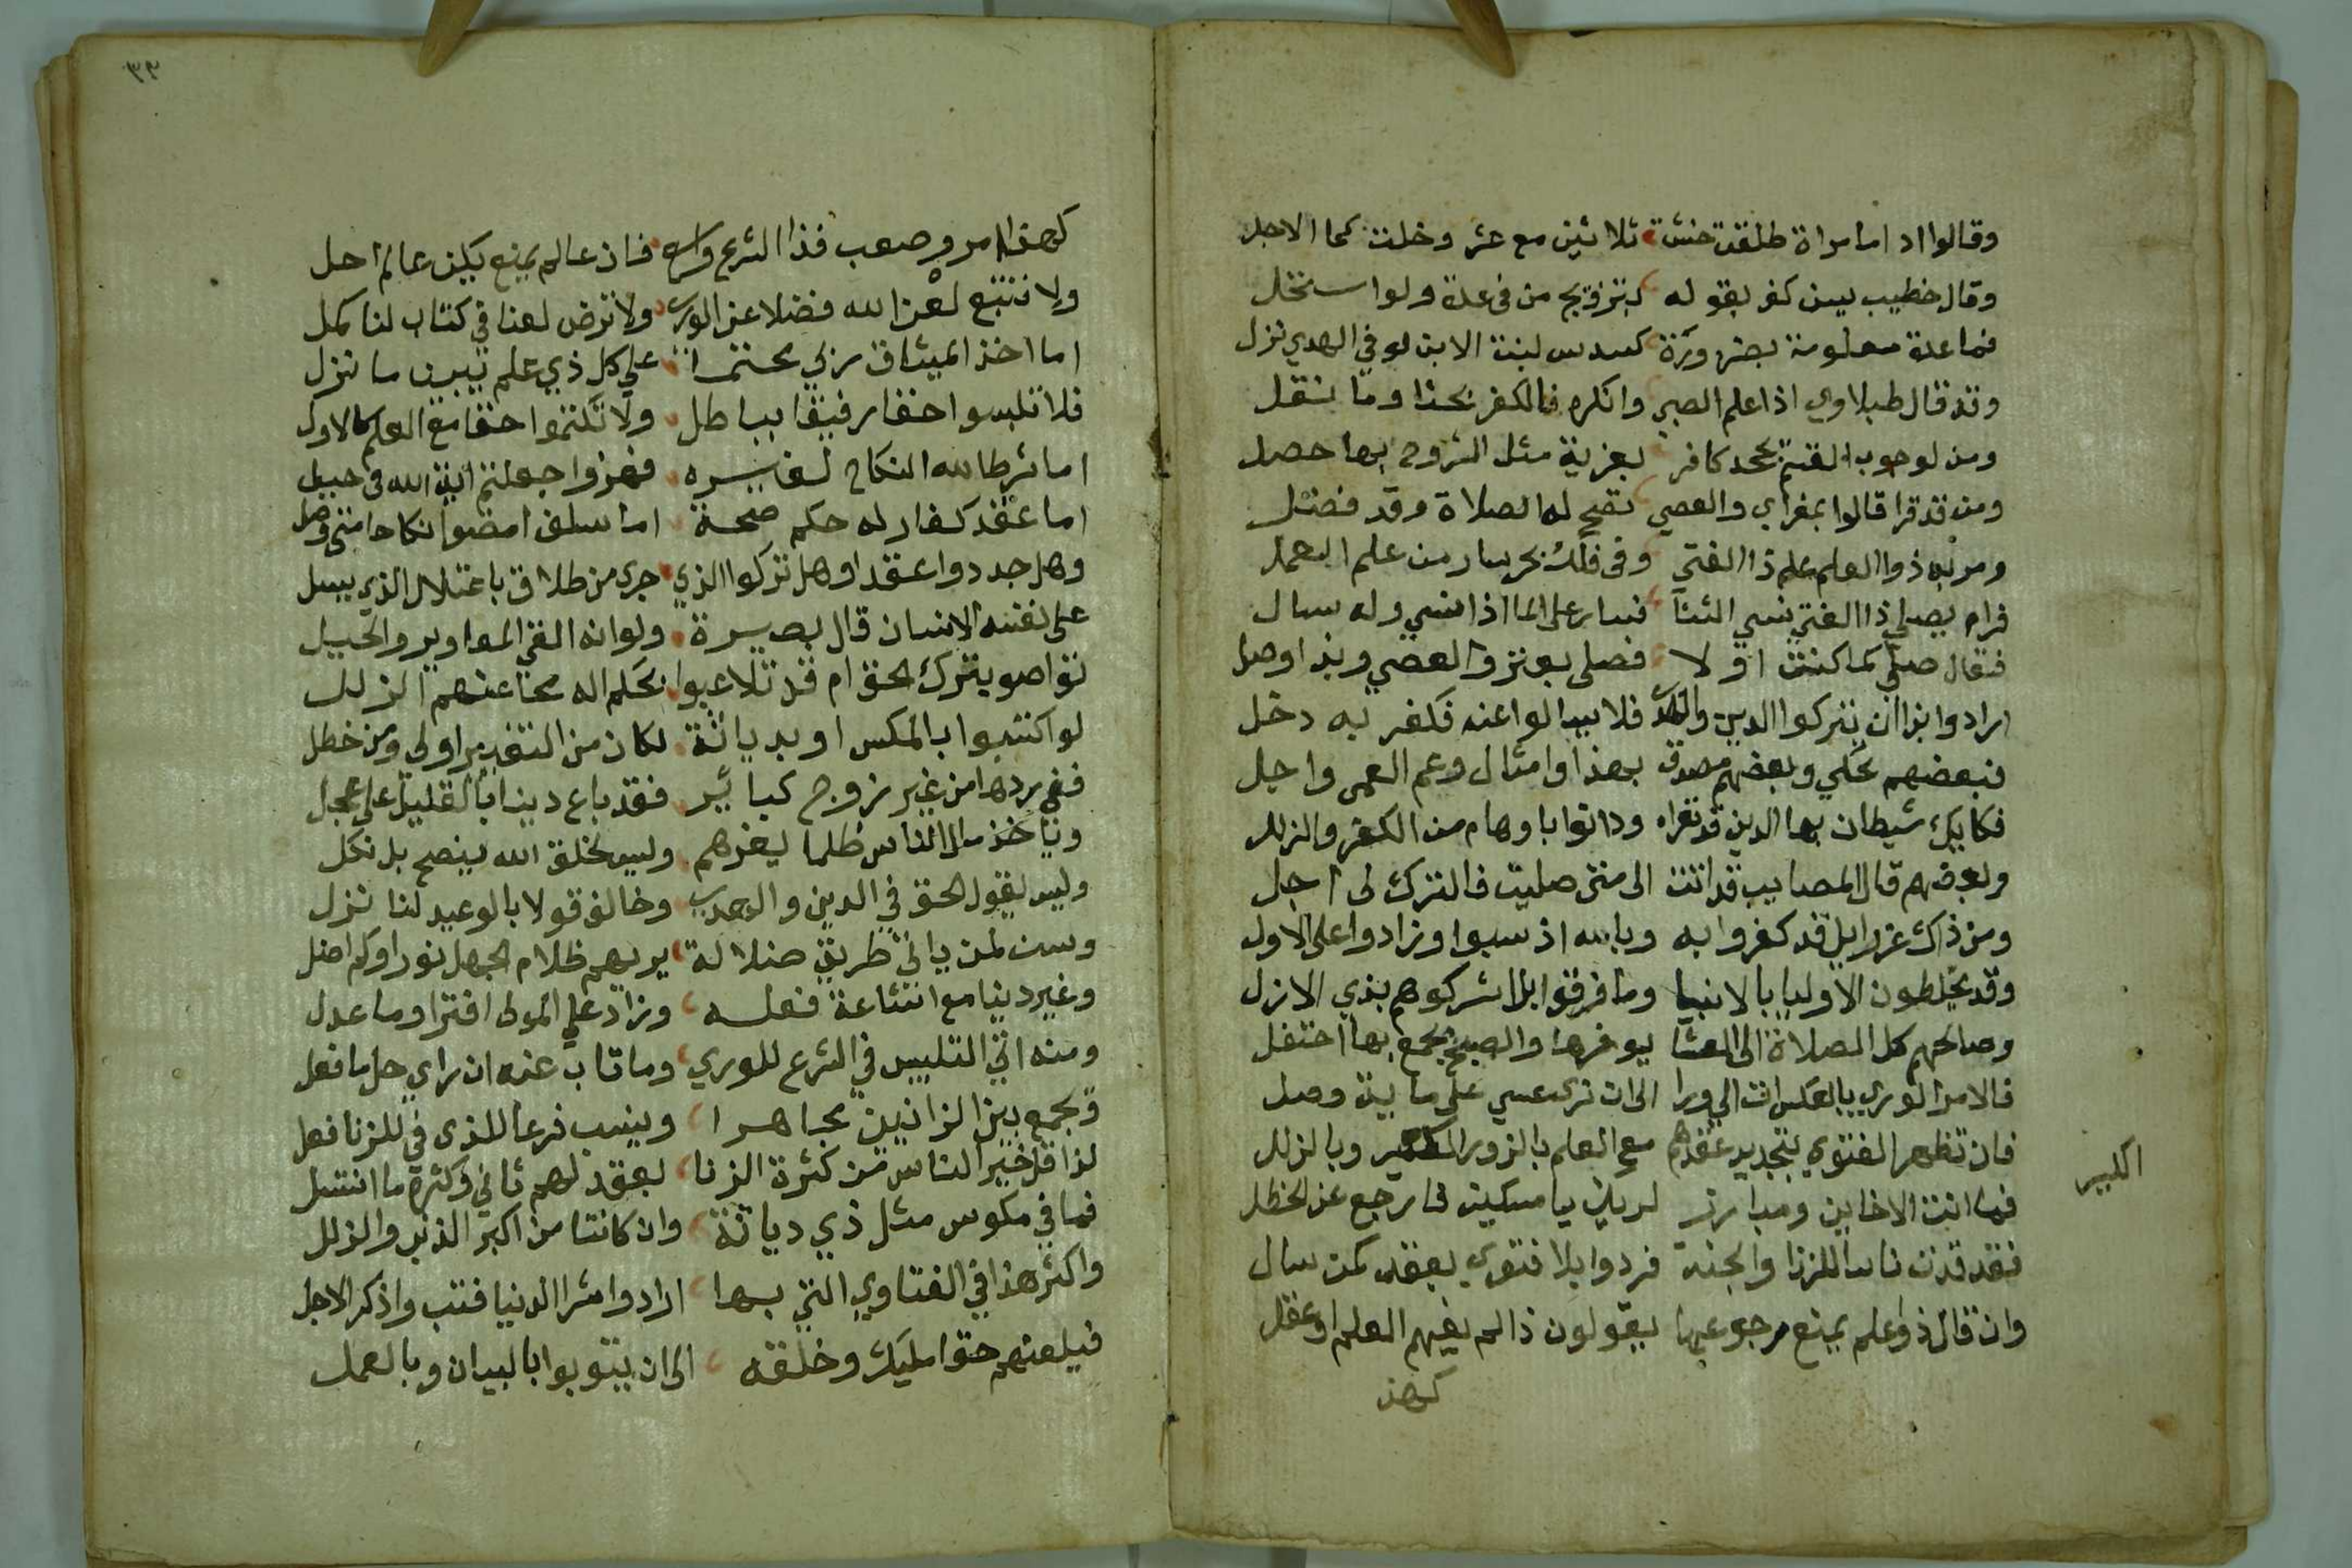 وقالوا اما امراة طلقت خنثة ثلاثين مع عشر وخلت كما الاجل
وقال خطيب ليس كفر بقوله بتزويج من في عدة ولو استحل
فما عدة معلومة بضرورة كسدس لبنت الابن لو في الهدي نزل
وقد قال طبلاوي اذا علم الصبي وانكره فالكفر بحثا وما نقل
ومن لوجوب يجحد كافر لعزبة مثل التزوج بها حصل
ومن قد قرا قالوا والعصي تصح له الصلاة وقد فضل
ذوا العلم علم ذا الفتى وفي فلك بحر سار من علم العمل
فرام يصلي ذا الفتى نسي الثنا فسار على الما اذا نسي وله سال
فقال صلي كما كنت اولا فصلى والعصي وبذا وصل
ارادوا بذا ان يتركوا الدين فلا يسالوا عنه فكفر به دخل
فبعضهم يحكي وبعضهم مصدق بهذا وامثال وعم العمى واجل
شيطان بها الدين قد ودانوا باوهام من الكفر والزلل
وبعضهم قال المصايب قد اتت الى متى صليت فالترك لي اجل
ومن ذاك عزرايل قد كفروا به وبالله اذ سبوا وزادوا على الاول
وقد يخلطون الاوليا بالانبيا وما فرقوا بل اشركوهم بذي الازل
وصالحهم كل الصلاة الى العشا يوفرها والصبح يجمع بها احتفل
فالامر الوري بالعكس الى ورا الى ان ترى عسي على ما بين وصل
فان تظهر الفتوي بتجديد عقدهم مع العلم بالزور وبالزلل
الكبير
فما انت الا خاين ومبارز لربك يا مسكين فارجع عن الخطل
فقد قدت ناسا للزنا والجنة فردوا بلا فتوي بعقد كمن سال
وان قال ذو علم يمنع رجوعها يقولون ذا لم يفهم العلم او عقل
كهذ
٣٣
كهذا امر وصعب فذا الشرع فان عالم يمنع يكن عالم احل
ولا نتبع لعن الله فضلا عن الوري ولا نرض لعنا في كتاب لنا كمل
اما اخذ الميثاق ربي محتما على كل ذي علم تبين ما نزل
فلا تلبسوا حقا رفيقا بباطل ولا تكتموا حقا مع العلم كالاول
اما شرط الله النكاح لغيره فهزوا جعلتم اية الله في حيل
اما عقد كفار له حكم صحة اما سلف امضوا نكاحا متى وصل
وهل جددوا عقدا وهل تركوا الذي جرى من طلاق باعتلال الذي يسل
على نفسه الانسان قال بصيرة ولو انه القى المعاوير والحيل
تواصوا بترك الحق ام قد تلاعبوا بحلم اله محا عنهم الزلل
لو اكتسبوا بالمكس او بدياثة لكان من التغرير اولى ومن خطل
ففي ردها من غير زوج كباير فقد باع دينا بالقليل على عجل
وياخذ مال الناس ظلما ليغرهم وليس لخلق الله ينصح بل نكل
وليس يقول الحق في الدين والهدي وخالف قولا بالوعيد لنا نزل
وسن لمن ياتي طريق ضلالة يريهم ظلام الجهل نورا وكم اضل
وغير دينا مع اشاعة فعله وزاد على المولى افترا وما عدل
ومنه اتى التلبيس في الشرع للوري وما تاب عنه ان راي حل ما فعل
وجمع بين الزانيين مجاهرا وينسب فرعا للذي في للزنا فعل
لذا قل خير الناس من كثرة الزنا بعقد لهم ثاني وكثرة ما انتسل
فما في مكوس مثل ذي دياثة وان كانتا من اكبر الذنب والزلل
واكثر هذا في الفتاوي التي بها ارادوا شرا الدنيا فتب واذكر الاجل
فيلعنهم حقا مليك وخلقه الى ان يتوبوا بالبيان وبالعمل